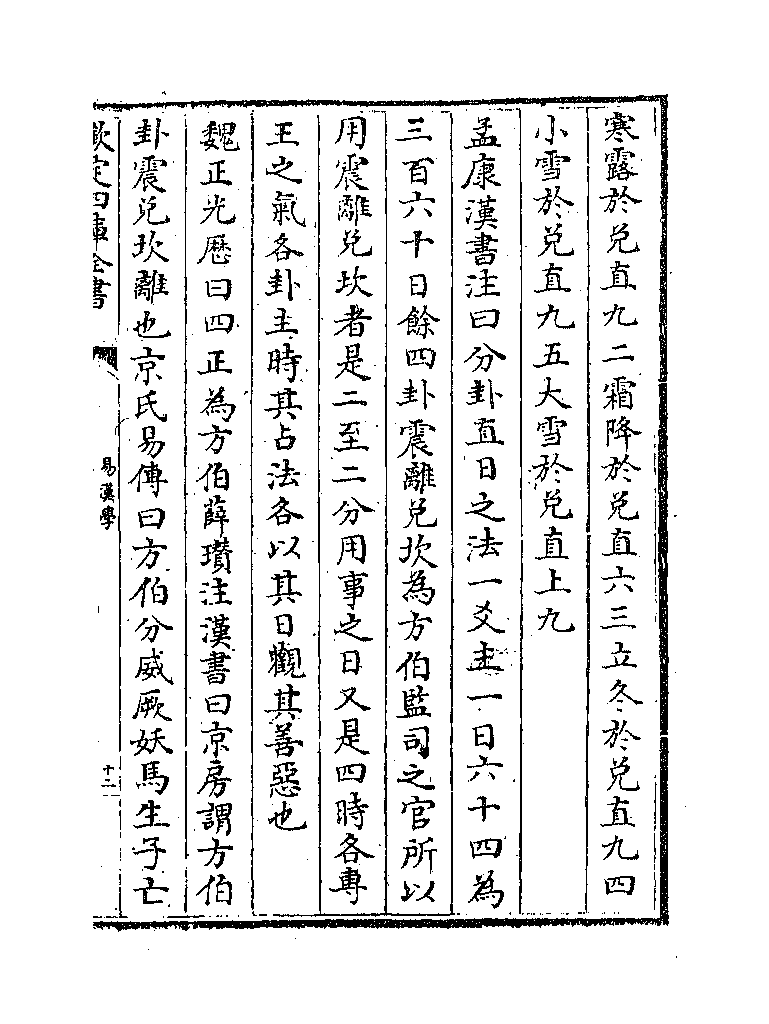 寒露於兑直九二霜降於兑直六三立冬於兑直九四
小雪於兑直九五大雪於兑直上九
孟康漢書注曰分卦直日之法一爻主一日六十四為
三百六十日餘四卦震離兑坎為方伯監司之官所以
用震離兑坎者是二至二分用事之日又是四時各專
王之氣各卦主時其占法各以其日觀其善惡也
魏正光厯曰四正為方伯薛瓉注漢書曰京房謂方伯
卦震兑坎離也京氏易傳曰方伯分威厥妖馬生子亡
欽定四庫全書
易漢學
十二